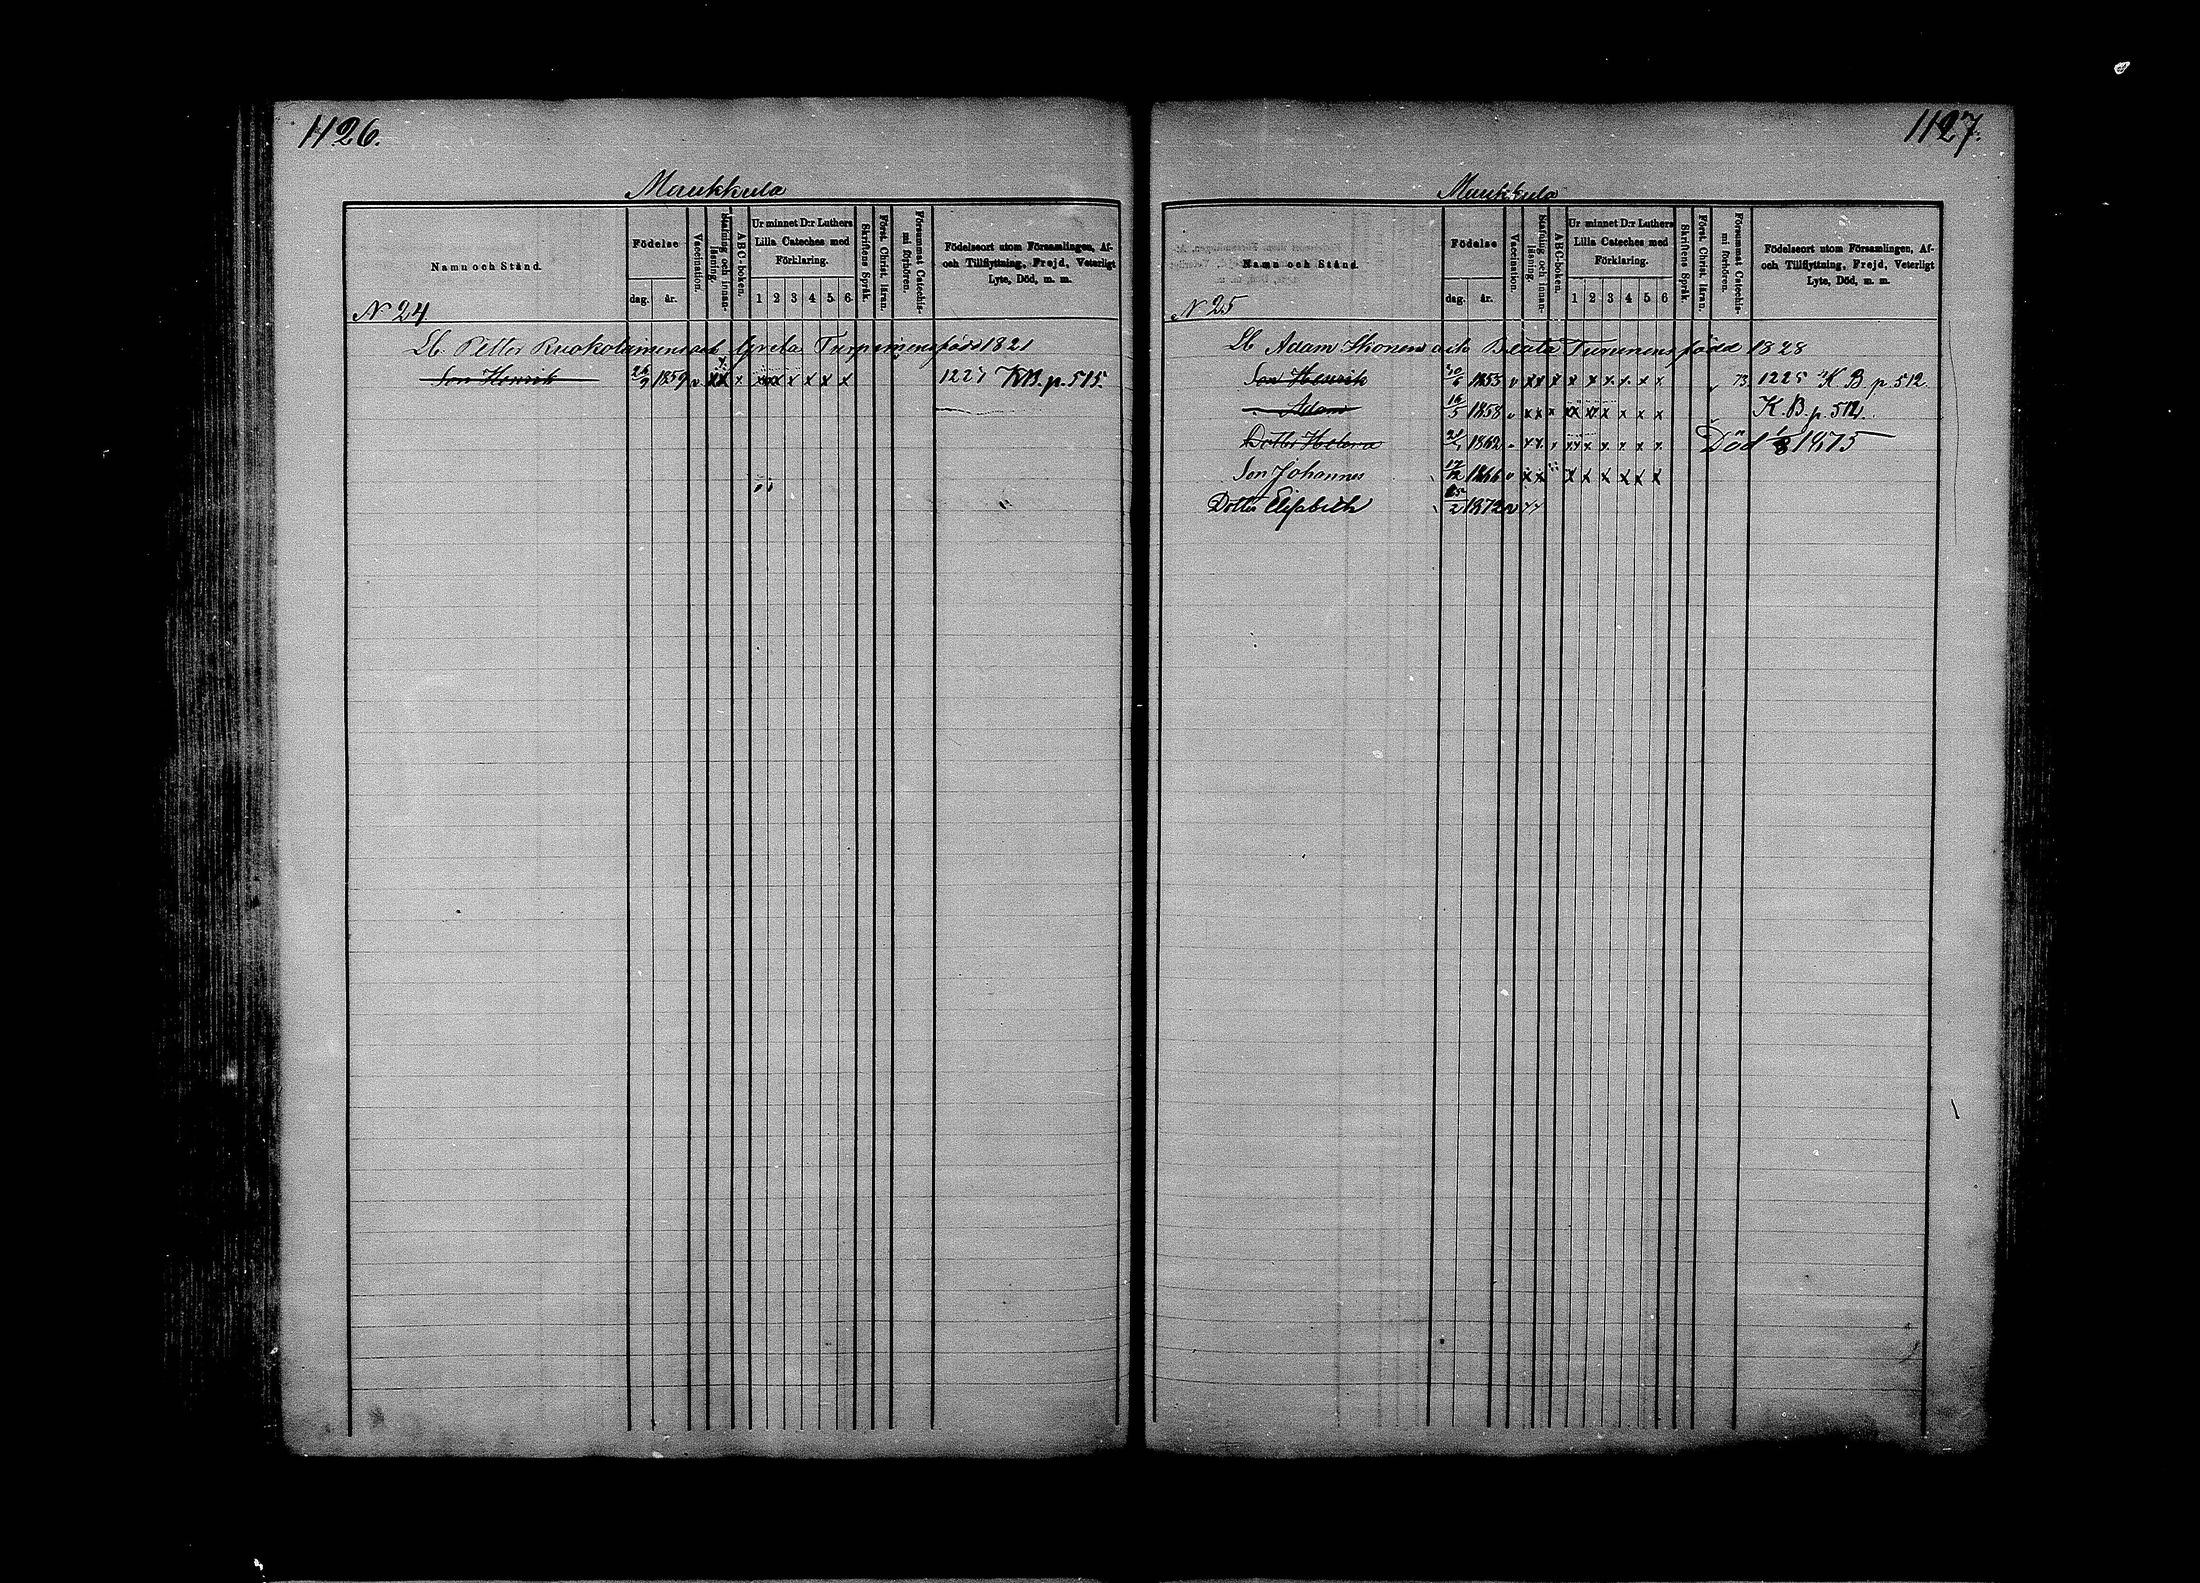 1126.
Maukkula
Namn och Stånd.
Födelse
dag. år.
Vaccination.
Stafning och innanläsning.
A B C-boken.
Ur minnet D:r Luthers Lilla Cateches med Förklaring.
1 2 3 4 5 6
Skriftens Språk.
Först. Christ. läran.
Försummat Catechismi förhören.
Födelseort utom Församlingen, Af- och Tillflyttning, Frejd, Veterligt Lyte, Död, m. m.
N 24
Lb. Petter Ruokolainens och Greta Turpeinens född 1821
Son Henrik 26/9 1859 v xx x x x x x x KB. p. 515.
1127.
Maukkula
Namn och Stånd.
Födelse
dag. år.
Vaccination.
Stafning och innanläsning.
A B C-boken.
Ur minnet D:r Luthers Lilla Cateches med Förklaring.
1 2 3 4 5 6
Skriftens Språk.
Först. Christ. läran.
Försummat Catechismi förhören.
Födelseort utom Församlingen, Af- och Tillflyttning, Frejd, Veterligt Lyte, Död, m. m.
N 25
Lb Adam Ikonens och Beata Turunens född 1828
Son Henrik 30/6 1855 v x x x x x x x x x 73 1225 K. B. p. 512.
Adam 16/5 1858 v x x x xx x x x x x K. B. p. 512.
Dotter Helena 1862 x x x x x x x x Död 1/8 1875
Son Johannes 17/12 1866 v x x x x x x x x
Dotter Elisabeth 2 1872 v x x